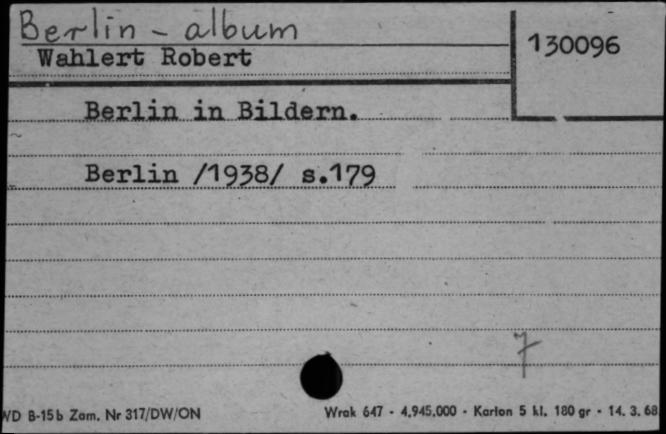 Berlin - album
Wahlert Robert
130096
Berlin in Bildern.
Berlin /1938/ s.179
7
WD B-15b Zam. Nr 317/DW/ON
Wrak 647 - 4,945,000 - Karton 5 kl. 180 gr - 14. 3. 68